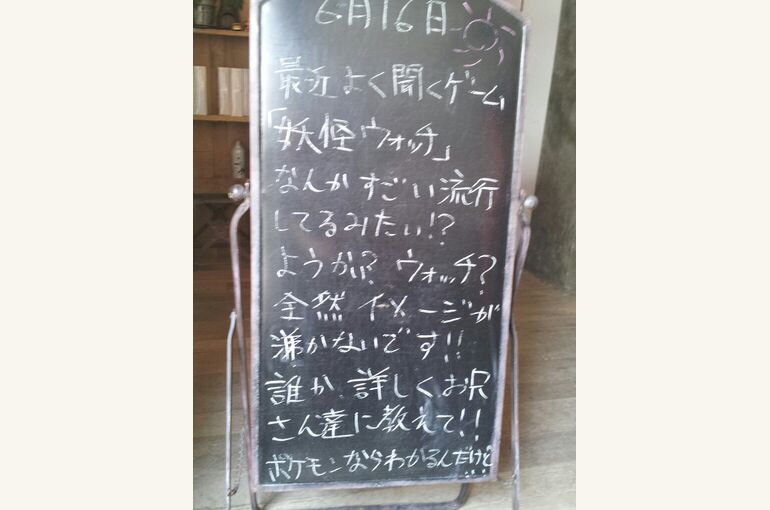 6月16日
最近よく聞くゲーム
「妖怪ウォッチ」
なんかすごい流行
してるみたい!?
ようかい?ウォッチ?
全然イメージが
沸かないです!!
誰か、詳しくお兄
さん達に教えて!!
ポケモンならわかるんだけど…